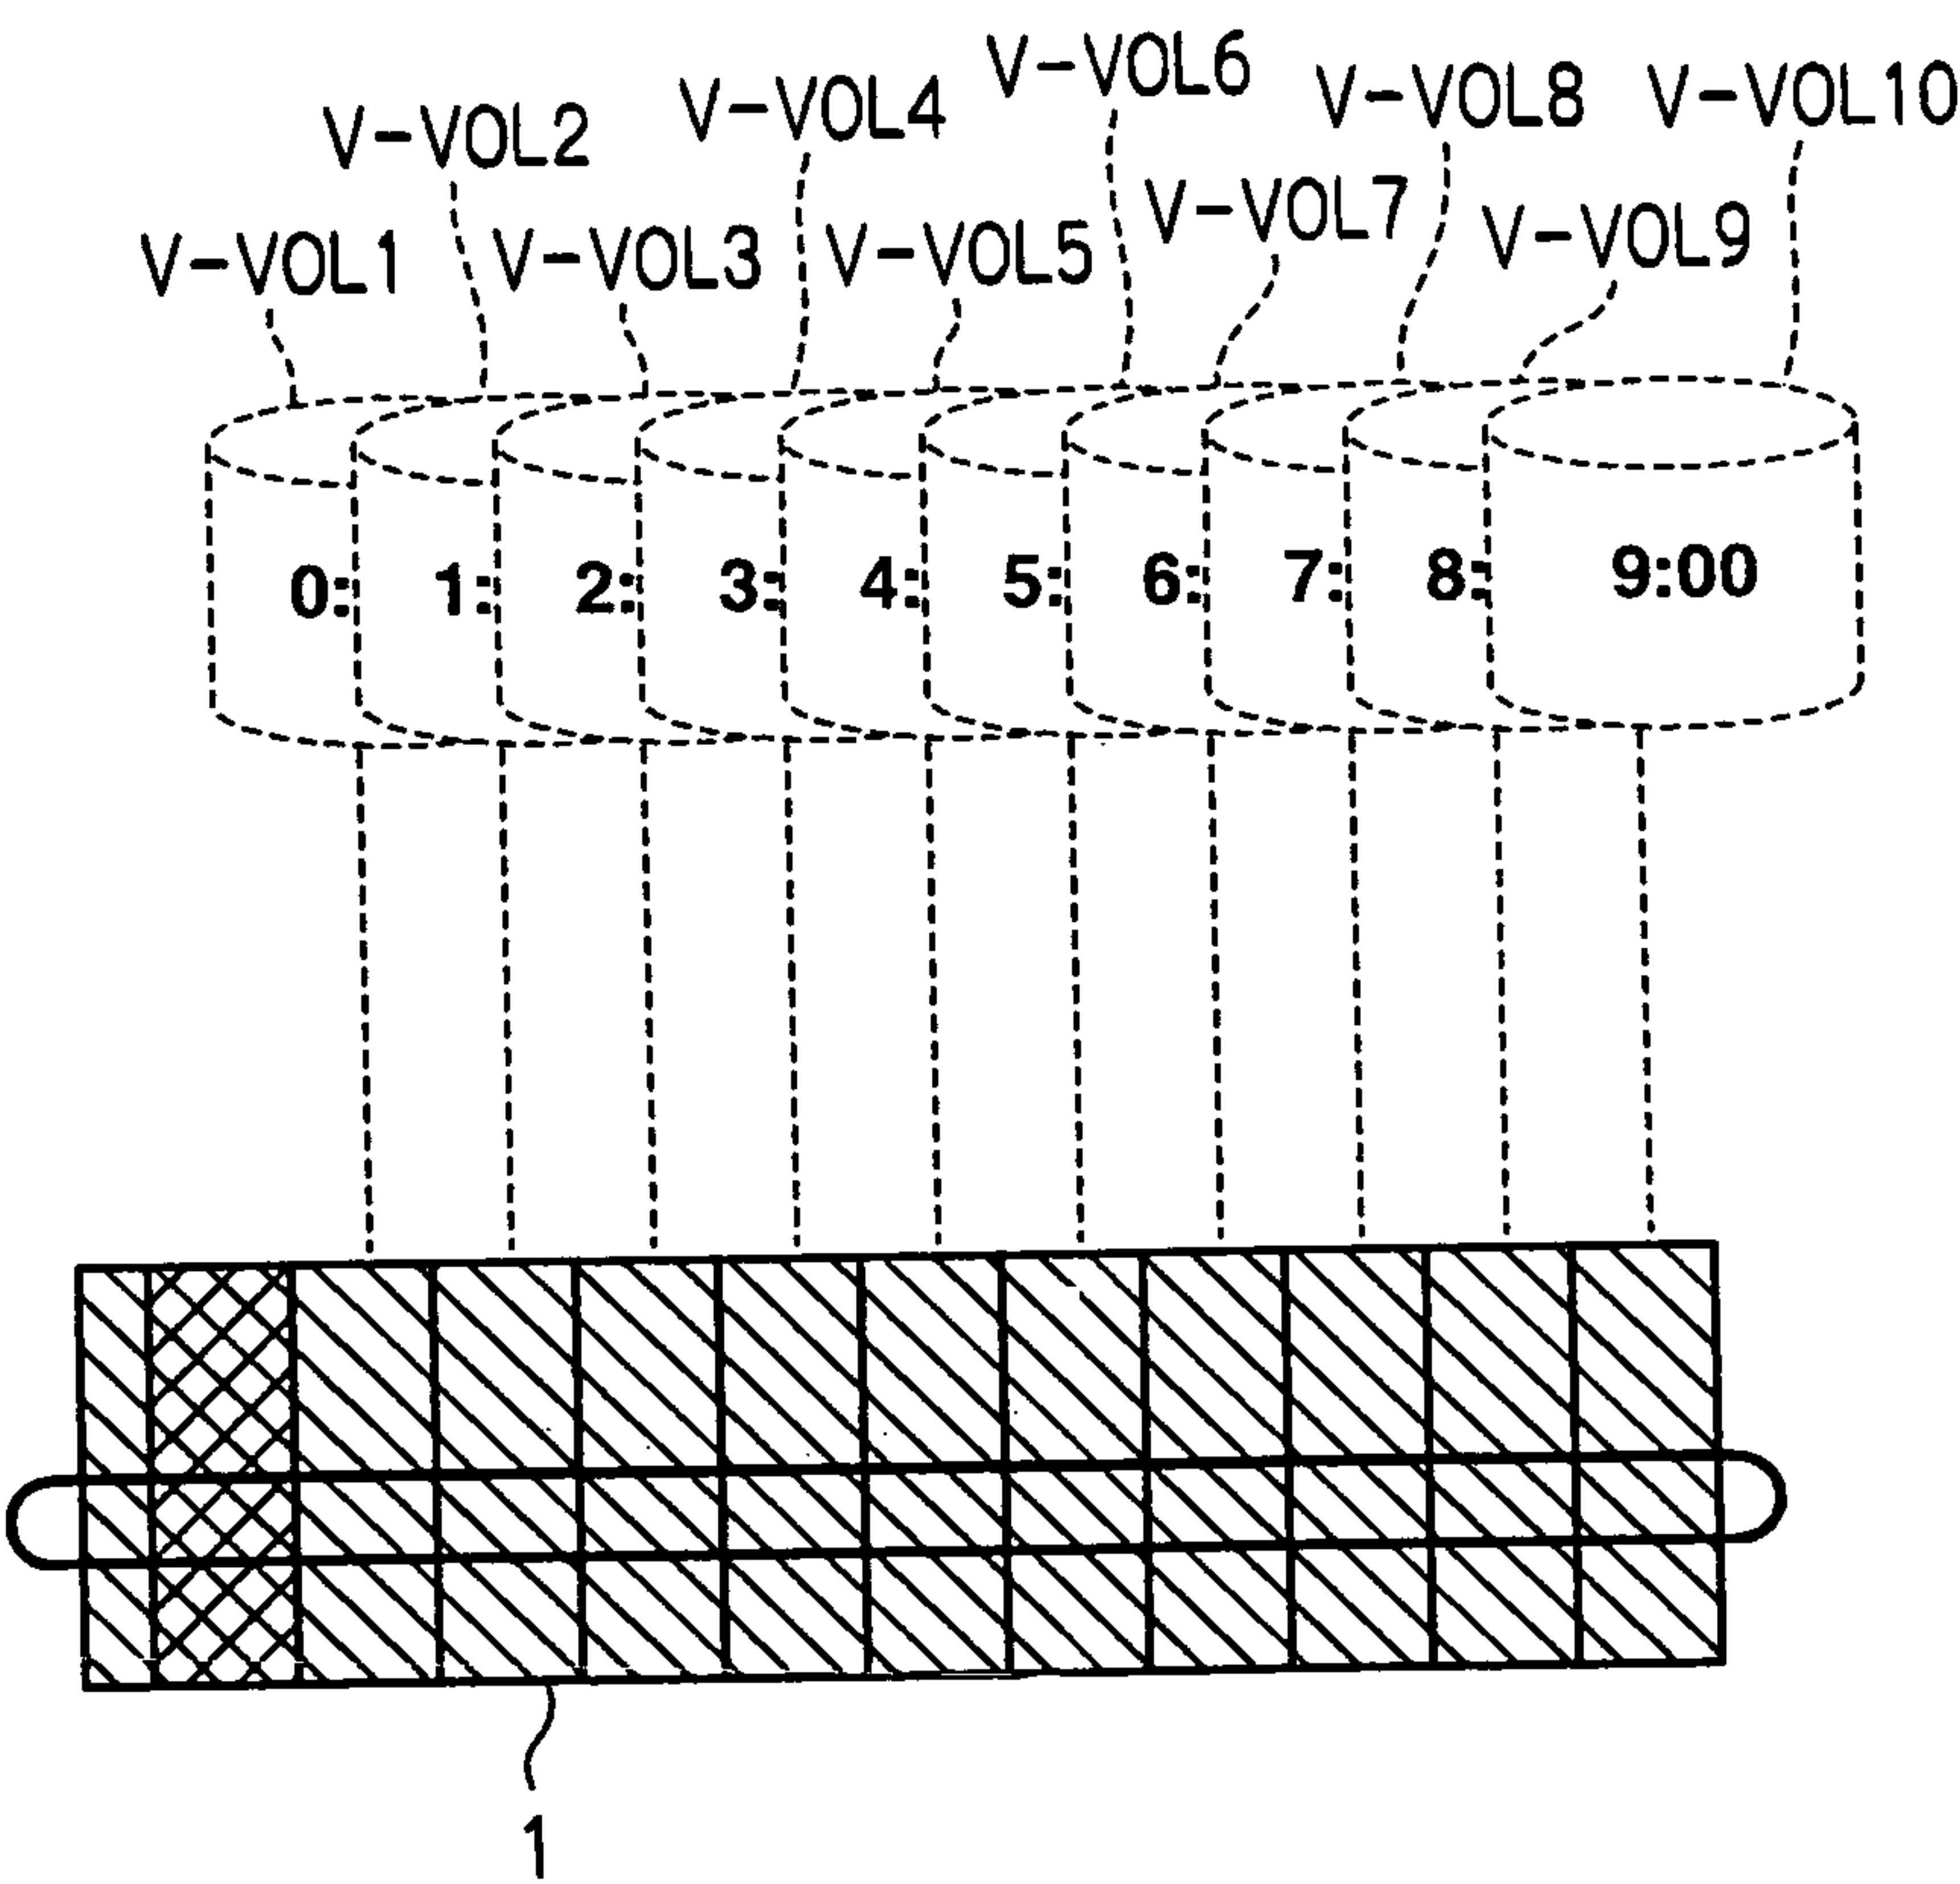 V-VOL1
V-VOL2
V-VOL3
V-VOL4
V-VOL5
V-VOL6
V-VOL7
V-VOL8
V-VOL9
V-VOL10
0: 1: 2: 3: 4: 5: 6: 7: 8: 9:00
1